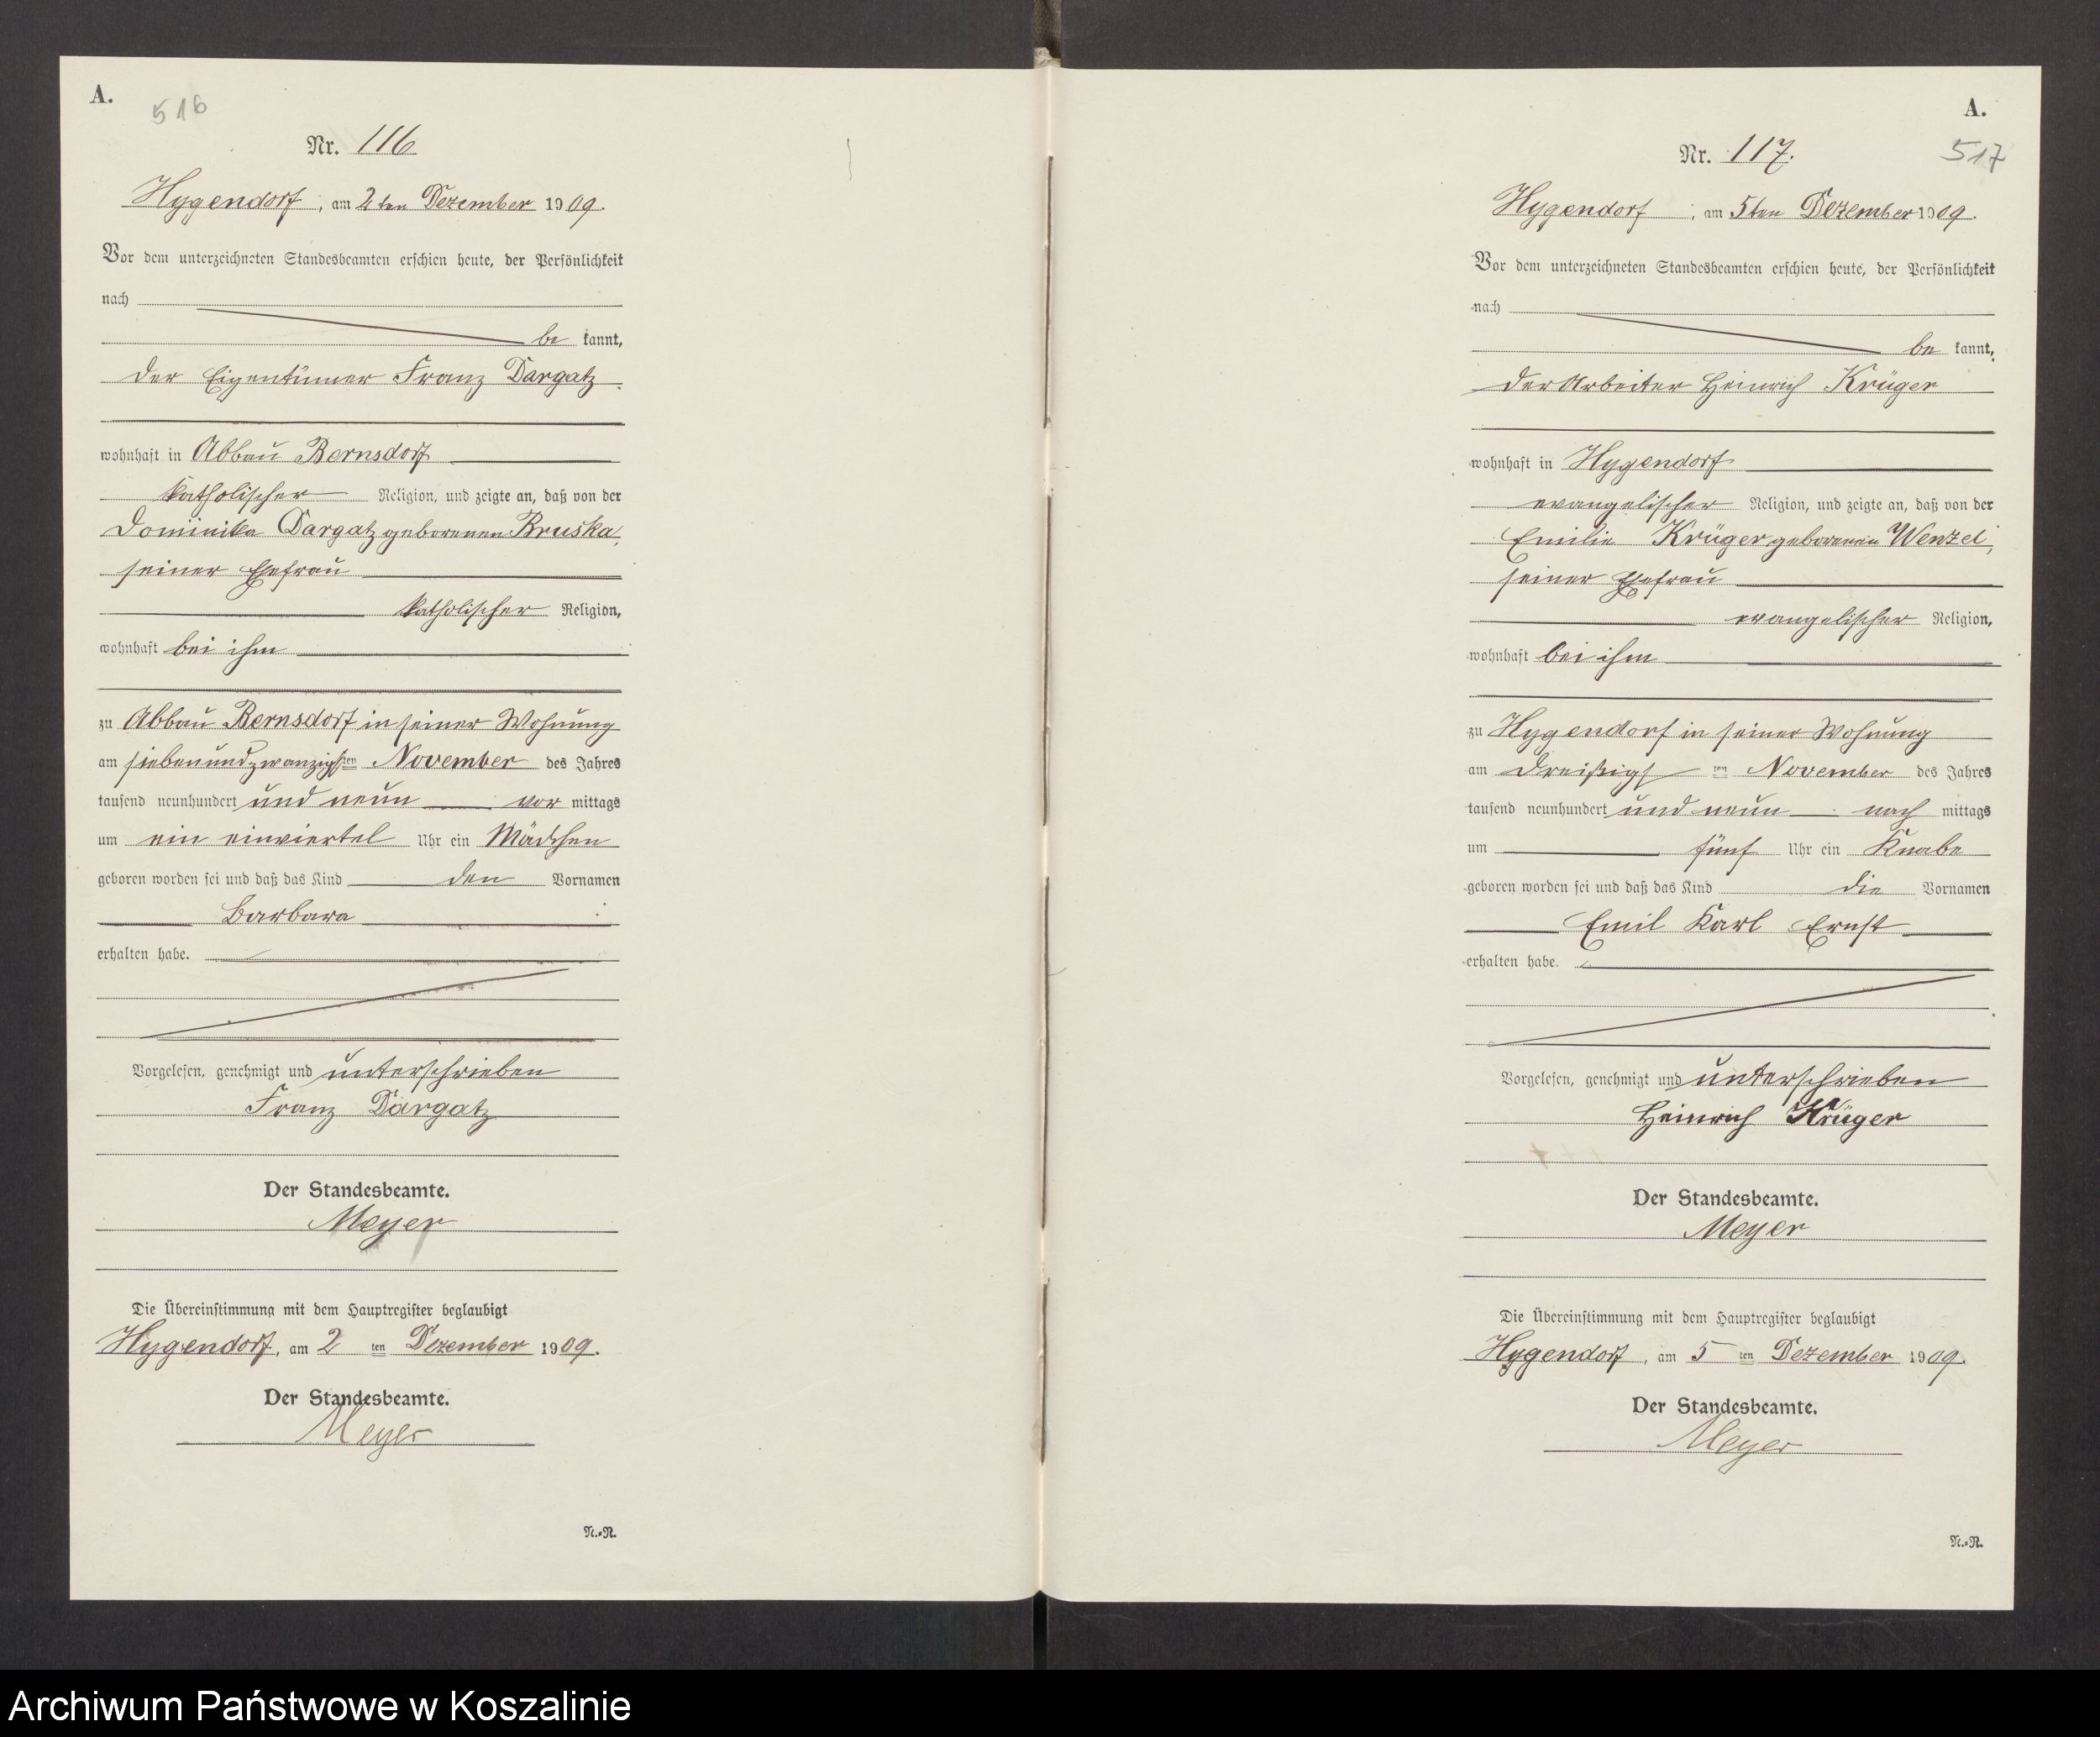 A.
516
Nr. 116
Hygendorf, am 2ten Dezember 1909.
Vor dem unterzeichneten Standesbeamten erschien heute, der Persönlichkeit
nach
be kannt,
der Eigentümer Franz Dargatz
wohnhaft in Abbau Bernsdorf
katholischer Religion, und zeigte an, daß von der
Dominika Dargatz geborenen Bruska,
seiner Ehefrau
katholischer Religion,
wohnhaft bei ihm
zu Abbau Bernsdorf in seiner Wohnung
am siebenundzwanzigsten November des Jahres
tausend neunhundert und neun vor mittags
um ein einviertel Uhr ein Mädchen
geboren worden sei und daß das Kind den Vornamen
Barbara
erhalten habe.
Vorgelesen, genehmigt und unterschrieben
Franz Dargatz
Der Standesbeamte.
Meyer
Die Übereinstimmung mit dem Hauptregister beglaubigt
Hygendorf, am 2ten Dezember 1909.
Der Standesbeamte.
Meyer
N.=R.
A.
517
Nr. 117.
Hygendorf, am 5ten Dezember 1909.
Vor dem unterzeichneten Standesbeamten erschien heute, der Persönlichkeit
nach
be kannt,
der Arbeiter Heinrich Krüger
wohnhaft in Hygendorf
evangelischer Religion, und zeigte an, daß von der
Emilie Krüger geborenen Wenzel,
seiner Ehefrau
evangelischer Religion,
wohnhaft bei ihm
zu Hygendorf in seiner Wohnung
am dreißigsten November des Jahres
tausend neunhundert und neun nach mittags
um fünf Uhr ein Knabe
geboren worden sei und daß das Kind die Vornamen
Emil Karl Ernst
erhalten habe.
Vorgelesen, genehmigt und unterschrieben
Heinrich Krüger
Der Standesbeamte.
Meyer
Die Übereinstimmung mit dem Hauptregister beglaubigt
Hygendorf, am 5ten Dezember 1909.
Der Standesbeamte.
Meyer
N.=R.
Archiwum Państwowe w Koszalinie